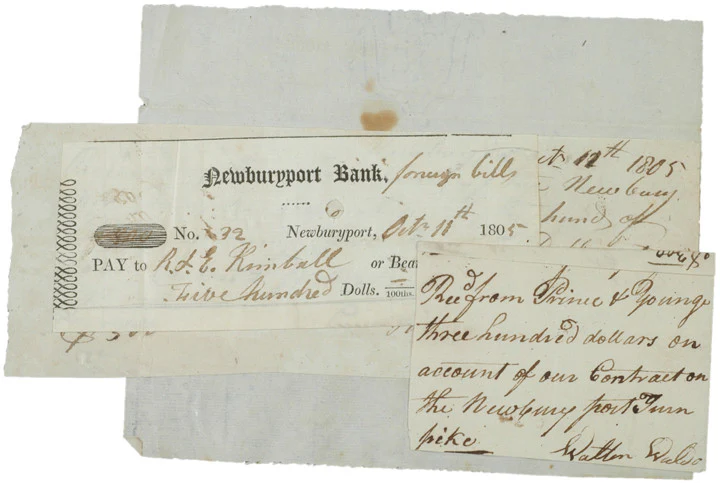 Newburyport Bank. foreign bills
No. 632 Newburyport, Octr 11th 1805
PAY to R & E. Kimball or Bea
Five hundred Dolls. 100ths.
12th 1805
Newbury
hund
$300
Recd from Prince &
three hundred dollars on
account of our Contract on
the Newbury port Turn
pike Walton